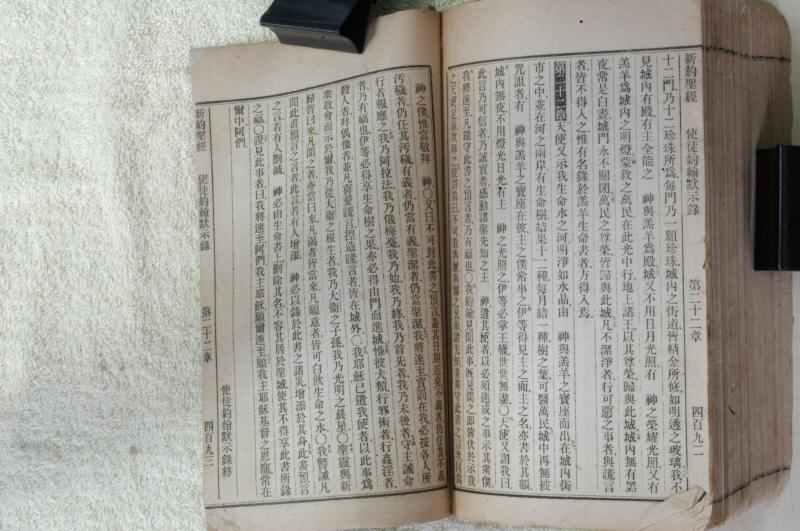 新約聖經 使徒約翰默示錄 第二十二章 四百九二
十二門乃十二珍珠所爲每門乃一顆珍珠城內之街道皆精金所修如明透之玻璃我不
見城內有殿有主全能之 神與羔羊爲殿城又不用日月光照有 神之榮耀光照又有
羔羊爲城內之明燈蒙救之萬民在此光中行地上諸王以其尊榮歸與此城城內無有黑
夜常是白晝城門永不關閉萬民之尊榮皆歸與此城凡不潔淨者行可惡之事者與謊言
者皆不得入之惟有名錄於羔羊生命書者方得入焉
第二十二章天使又示我生命水之河明淨如水晶由 神與羔羊之寶座而出在城內街
市之中並在河之兩岸有生命樹結果十二種每月結一種樹之葉可醫萬民城中再無被
咒詛者有 神與羔羊之寶座在彼主之僕常事之伊等得見主之面主之名亦書於其額
城內無夜不用燈光日光有主 神之光照之伊等必掌王權世世無盡〇天使又謂我曰
此言乃可信者乃誠實者感動諸聖先知之主 神遣其使者以必須速成之事示其衆僕
我將速至凡遵守此書之預言者乃有福也〇我約翰見聞此事旣見聞之卽俯伏於示我
神之僕惟當敬拜 神〇又曰不可封此書之預言蓋其日期近矣不義者仍任其不義
污穢者仍任其污穢有義者仍當有義聖潔者仍當聖潔我將速至賞罰在我必按各人所
行者報應之我乃阿拉法我乃俄梅戛我乃始我乃終我乃首先者我乃末後者守主誡命
者乃有福也伊等必得享生命樹之果亦必得由門而進城惟彼犬類行邪術者行姦淫者
殺人者拜偶像者並凡喜愛謊言揑造謊言者皆在城外〇我耶穌已遣我使者以此事爲
衆敎會而示於爾我乃從大衛之根生者我乃大衛之子孫我乃光明之晨星〇聖靈與新
婦皆曰來凡聞之者亦當曰來凡渴者皆當來凡願意者皆可白飮生命之水〇我警誡凡
聞此書預言之言者此言若有人增添 神必以錄於此書之諸災增添於其身此書預言
之言若有人刪減 神必由生命書上刪除其名不容其居於聖城使其不得享此書所錄
之福〇證見此事者曰我將速至阿們我主耶穌願爾速至願我主耶穌基督之恩寵常在
爾中阿們
使徒約翰默示錄終
新約聖經 使徒約翰默示錄 第二十二章 四百九三